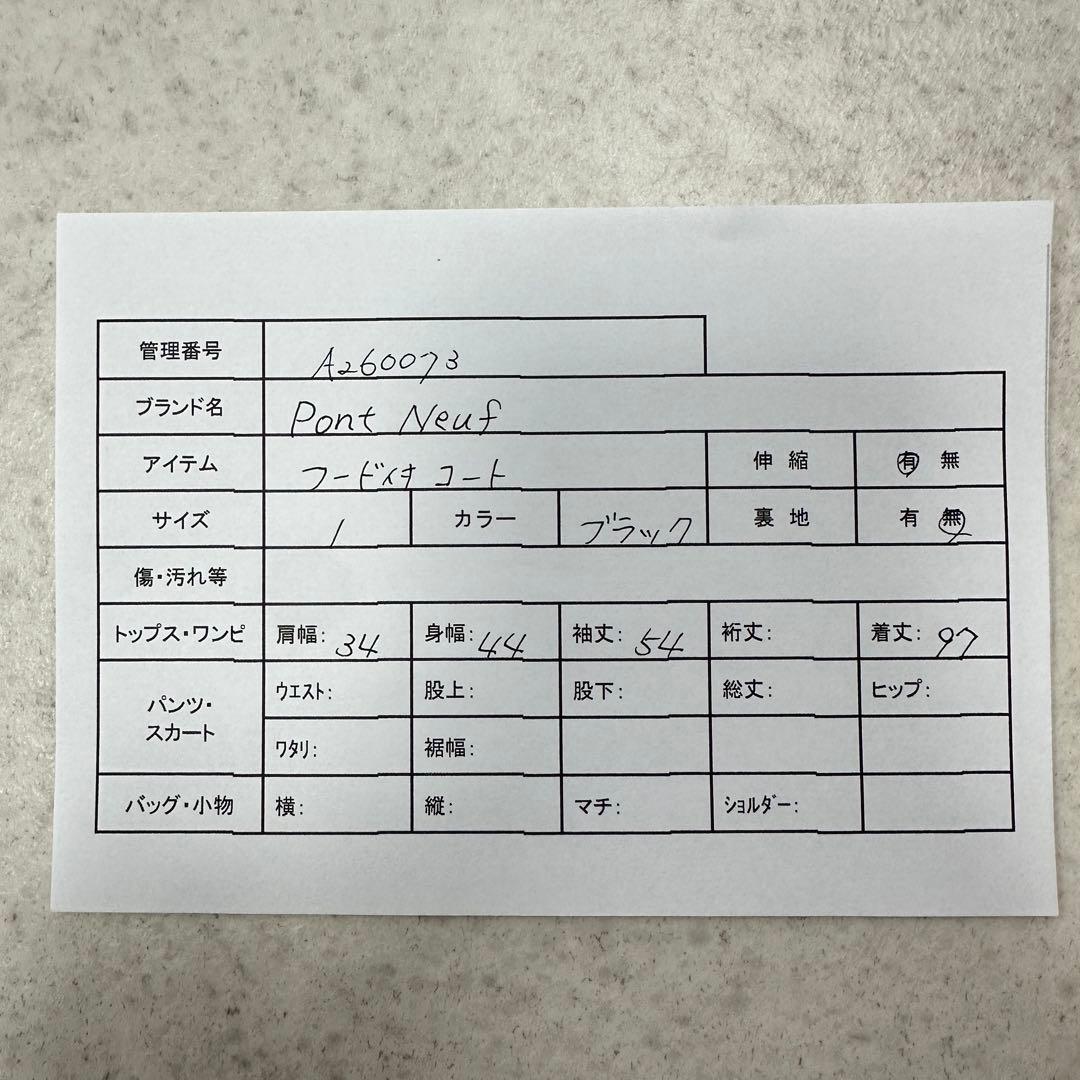 管理番号 A260073
ブランド名 Pont Neuf
アイテム フード付コート 伸縮 有 無
サイズ 1 カラー ブラック 裏地 有 無
傷・汚れ等
トップス・ワンピ 肩幅: 34 身幅: 44 袖丈: 54 裄丈: 着丈: 97
パンツ・スカート ウエスト: 股上: 股下: 総丈: ヒップ:
ワタリ: 裾幅:
バッグ・小物 横: 縦: マチ: ショルダー: